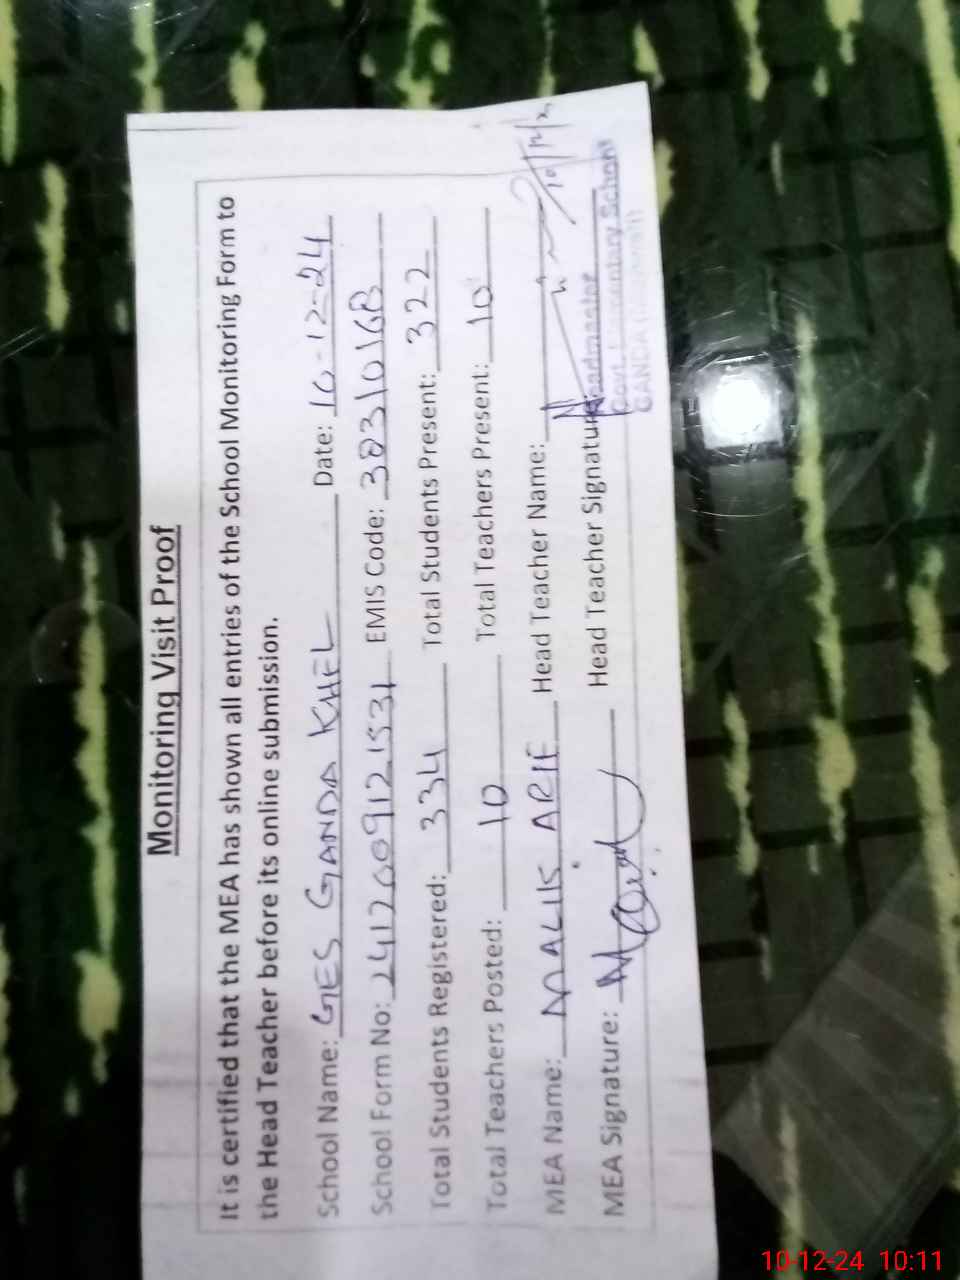 Monitoring Visit Proof
It is certified that the MEA has shown all entries of the School Monitoring Form to
the Head Teacher before its online submission.
School Name: GES GANDA KHEL Date: 10-12-24
School Form No: 2412009121531 EMIS Code: 38310168
Total Students Registered: 334 Total Students Present: 322
Total Teachers Posted: 10 Total Teachers Present: 10
MEA Name: MALIK ARIF Head Teacher Name:
MEA Signature: Head Teacher Signature:
Headmaster
Govt. Elementary School
GANDA
10-12-24 10:11